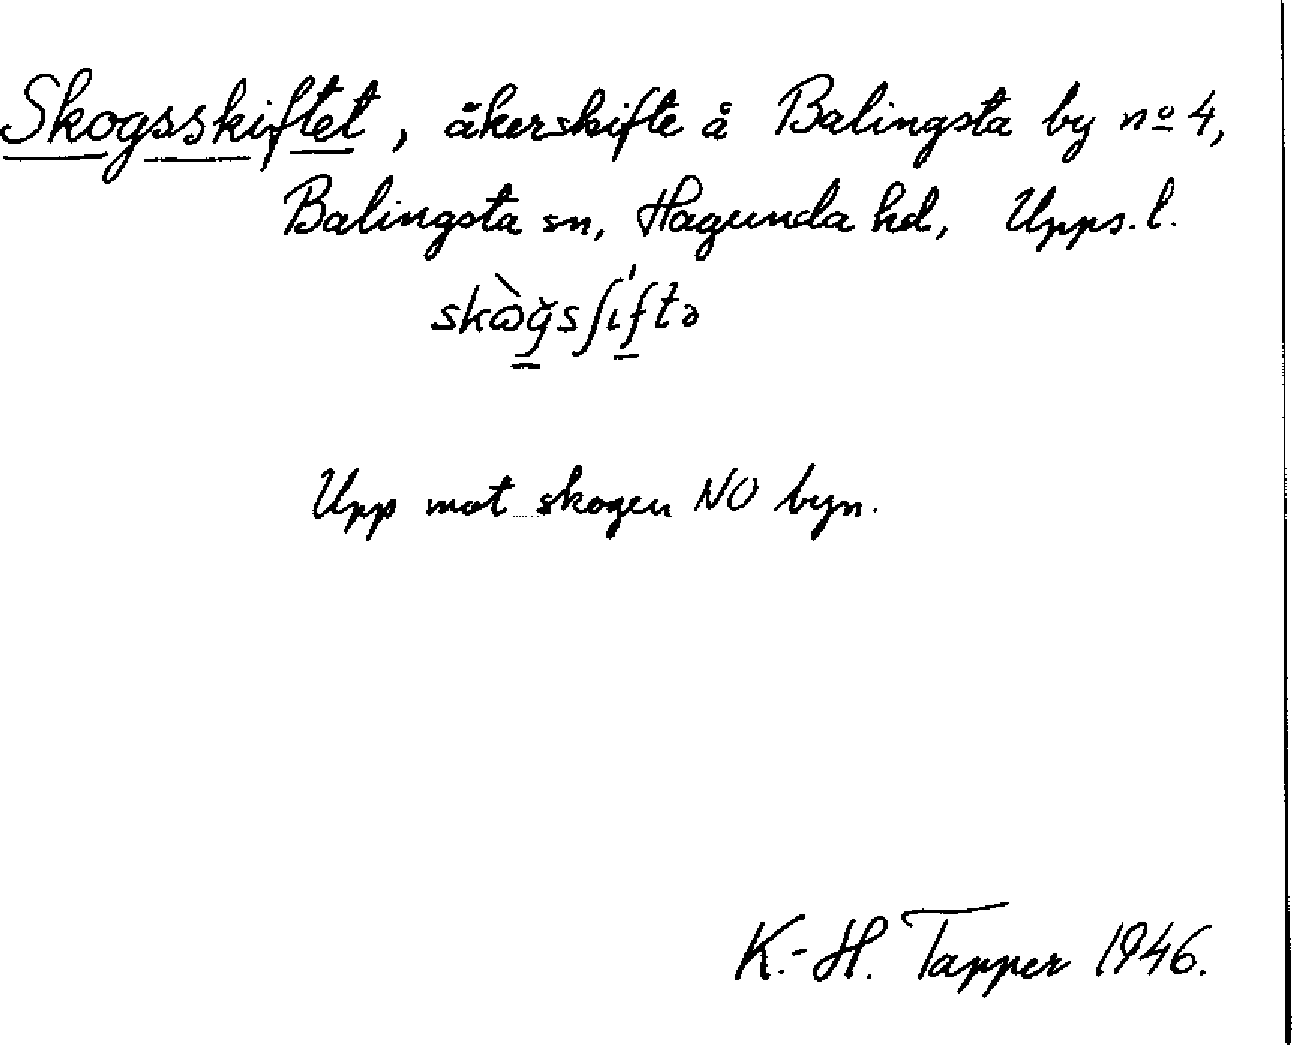 Skogsskiftet, åkerskifte å Balingsta by nº 4,
Balingsta sn, Hagunda hd, Upps. l.
skὼğsʃıftə
Upp mot skogen NO byn.
K.-H. Tapper 1946.